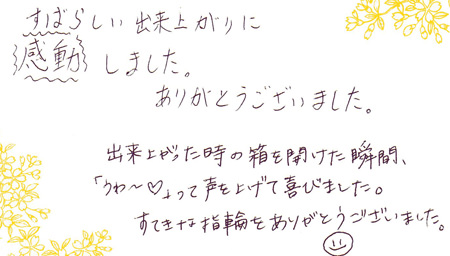 すばらしい出来上がりに
感動しました。
ありがとうございました。
出来上がった時の箱を開けた瞬間、
「うわ〜♡」って声を上げて喜びました。
すてきな指輪をありがとうございました。